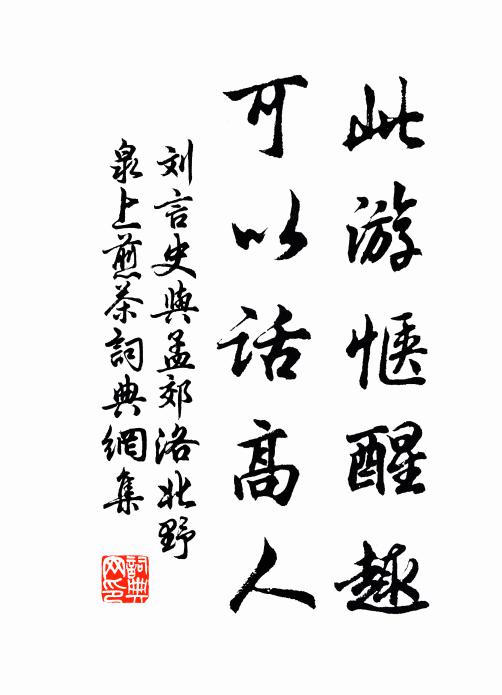 此游惬醒趣
可以话高人
刘言史與孟郊洛北野
泉上煎茶詞典網集
詞典
网印